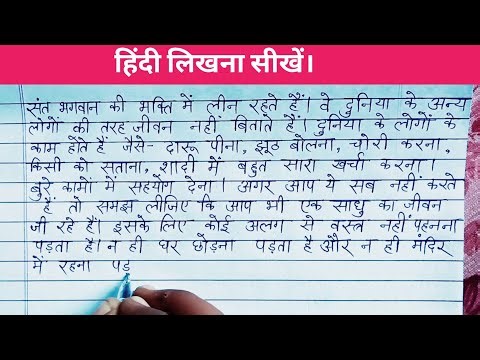 हिंदी लिखना सीखें।
संत भगवान की भक्ति में लीन रहते हैं। वे दुनिया के अन्य
लोगों की तरह जीवन नहीं बिताते हैं। दुनिया के लोगों के
काम होते हैं जैसे- दारू पीना, झूठ बोलना, चोरी करना,
किसी को सताना, शादी में बहुत सारा खर्चा करना।
बुरे कामों में सहयोग देना। अगर आप ये सब नहीं करते
हैं तो समझ लीजिए कि आप भी एक साधु का जीवन
जी रहे हैं। इसके लिए कोई अलग से वस्त्र नहीं पहनना
पड़ता है। न ही घर छोड़ना पड़ता है और न ही मंदिर
में रहना पड़